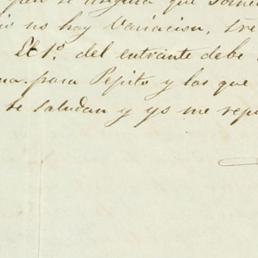 que
no hay Variacion, tre
El 1º. del entrante debe
para Pepito y las que
te saludan y yo me rep